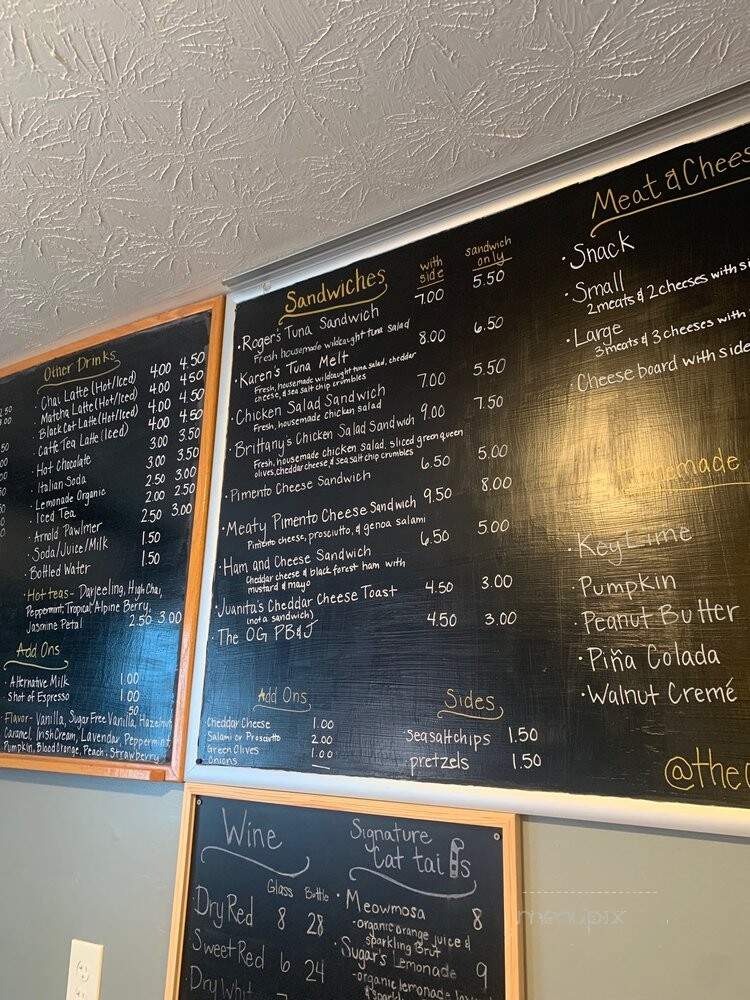 Other Drinks
· Chai Latte (Hot/Iced) 4.00 4.50
· Matcha Latte (Hot/Iced) 4.00 4.50
· Black Cat Latte (Hot/Iced) 4.00 4.50
· Caffe Tea Latte (Iced) 4.00 4.50
· Hot Chocolate 3.00 3.50
· Italian Soda 3.00 3.50
· Lemonade Organic 2.50 3.00
· Iced Tea 2.00 2.50
· Arnold Pawlmer 2.50 3.00
· Soda/Juice/Milk 1.50
· Bottled Water 1.50
· Hot teas - Darjeeling, High Chai,
Peppermint, Tropical, Alpine Berry,
Jasmine Petal 2.50 3.00
Add Ons
· Alternative Milk 1.00
· Shot of Espresso 1.00
.50
· Flavor - Vanilla, Sugar Free Vanilla, Hazelnut
Caramel, Irish Cream, Lavender, Peppermint
Pumpkin, Blood Orange, Peach, Strawberry
Sandwiches
with side
sandwich only
· Roger's Tuna Sandwich 7.00 5.50
Fresh housemade wildcaught tuna salad
· Karen's Tuna Melt 8.00 6.50
Fresh, housemade wildcaught tuna salad, cheddar
cheese, & sea salt chip crumbles
· Chicken Salad Sandwich 7.00 5.50
Fresh, housemade chicken salad
· Brittany's Chicken Salad Sandwich 9.00 7.50
Fresh, housemade chicken salad, sliced green queen
olives, cheddar cheese & sea salt chip crumbles
· Pimento Cheese Sandwich 6.50 5.00
· Meaty Pimento Cheese Sandwich 9.50 8.00
Pimento cheese, prosciutto, & genoa salami
· Ham and Cheese Sandwich 6.50 5.00
Cheddar cheese & black forest ham with
mustard & mayo
· Juanita's Cheddar Cheese Toast 4.50 3.00
(not a sandwich)
· The OG PB&J 4.50 3.00
Add Ons
Cheddar Cheese 1.00
Salami or Prosciutto 2.00
Green Olives 1.00
Onions
Sides
sea salt chips 1.50
pretzels 1.50
Meat & Chees
· Snack
· Small
2 meats & 2 cheeses with si
· Large
3 meats & 3 cheeses with
· Cheese board with side
emade
· Key Lime
· Pumpkin
· Peanut Butter
· Piña Colada
· Walnut Cremé
@the
Wine
Glass Bottle
· Dry Red 8 28
· Sweet Red 6 24
· Dry Whit
Signature
Cat tails
· Meowmosa 8
· organic orange juice &
sparkling Brut
· Sugar's Lemonade 9
· organic lemonade
menupix